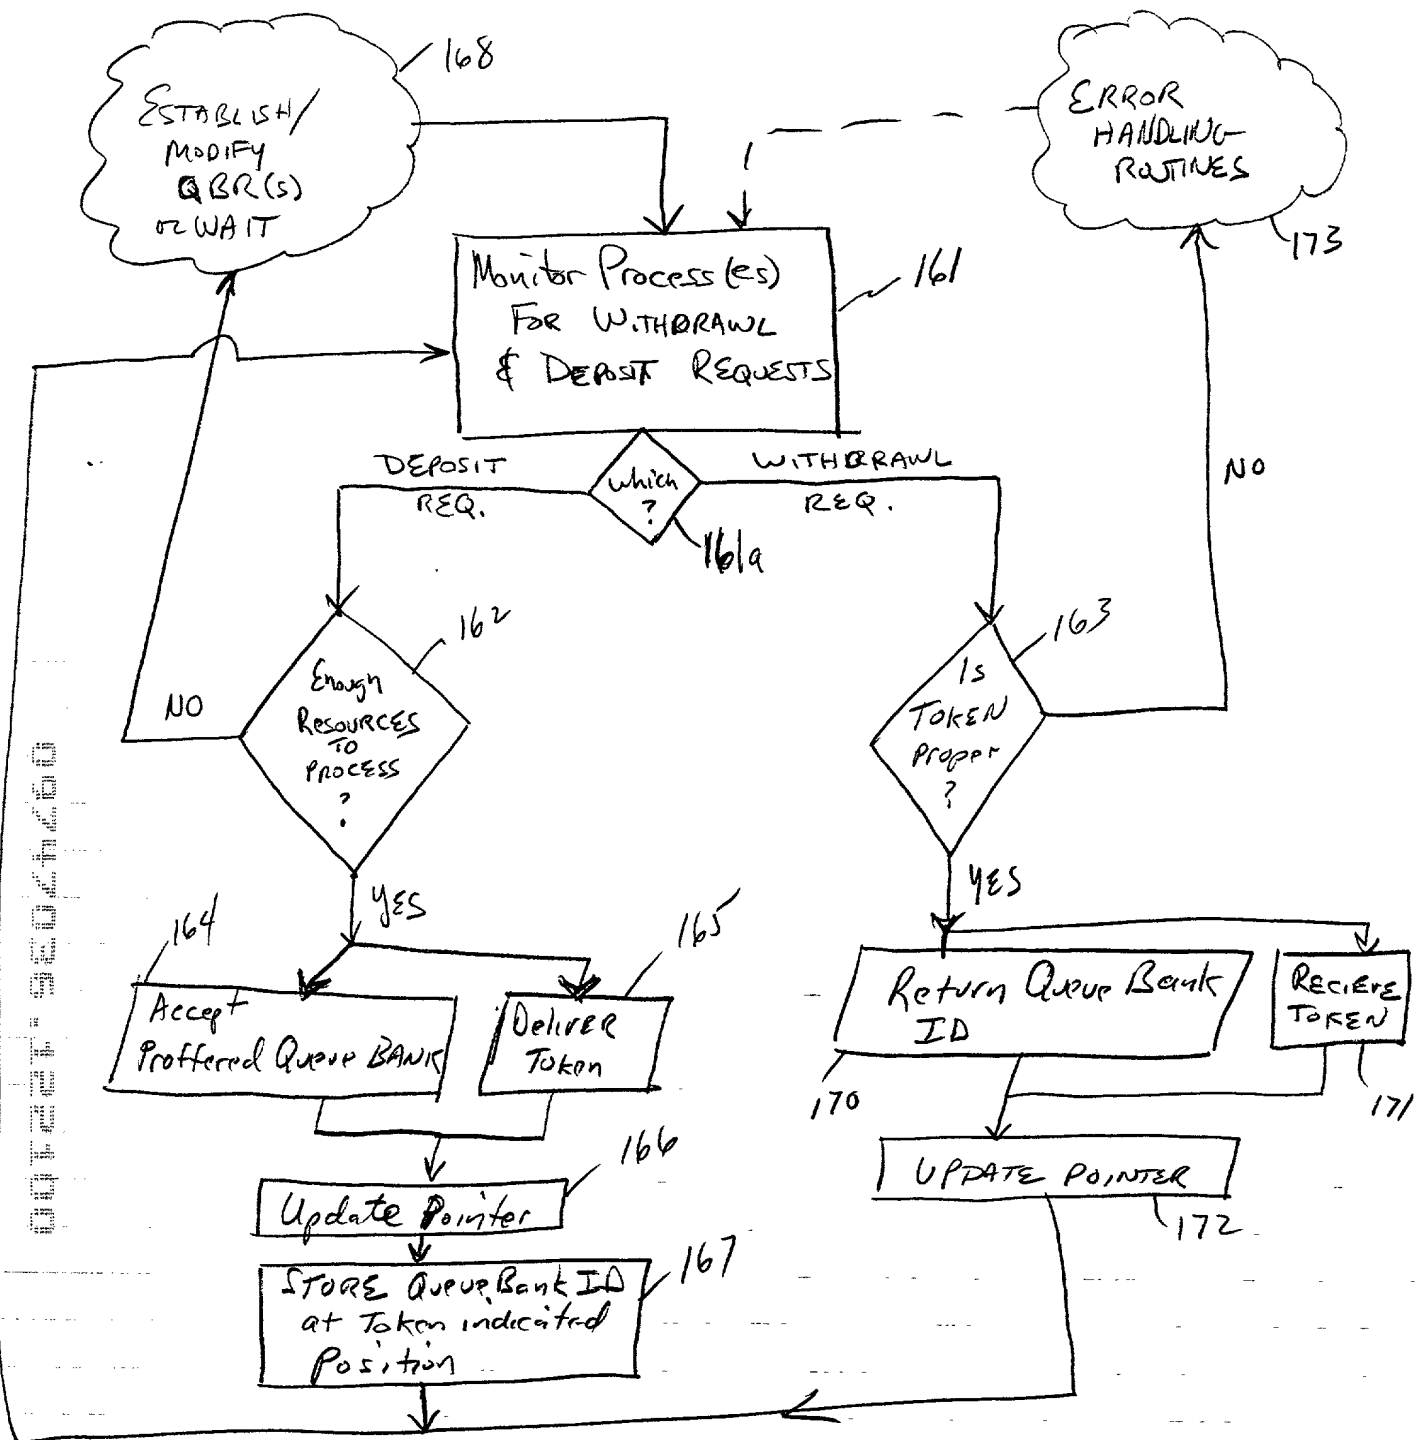 168
ESTABLISH/
MODIFY
QBR(s)
or WAIT
ERROR
HANDLING
ROUTINES
173
Monitor Process(es)
FOR WITHDRAWL
& DEPOSIT REQUESTS
161
DEPOSIT
REQ.
which
?
WITHDRAWL
REQ.
161a
NO
162
Enough
RESOURCES
TO
PROCESS
?
NO
163
Is
TOKEN
Proper
?
YES
YES
164
Accept
Proffered Queue BANK
165
DELIVER
Token
Return Queue Bank
ID
170
RECIEVE
TOKEN
171
166
Update Pointer
UPDATE POINTER
172
167
STORE Queue Bank ID
at Token indicated
Position